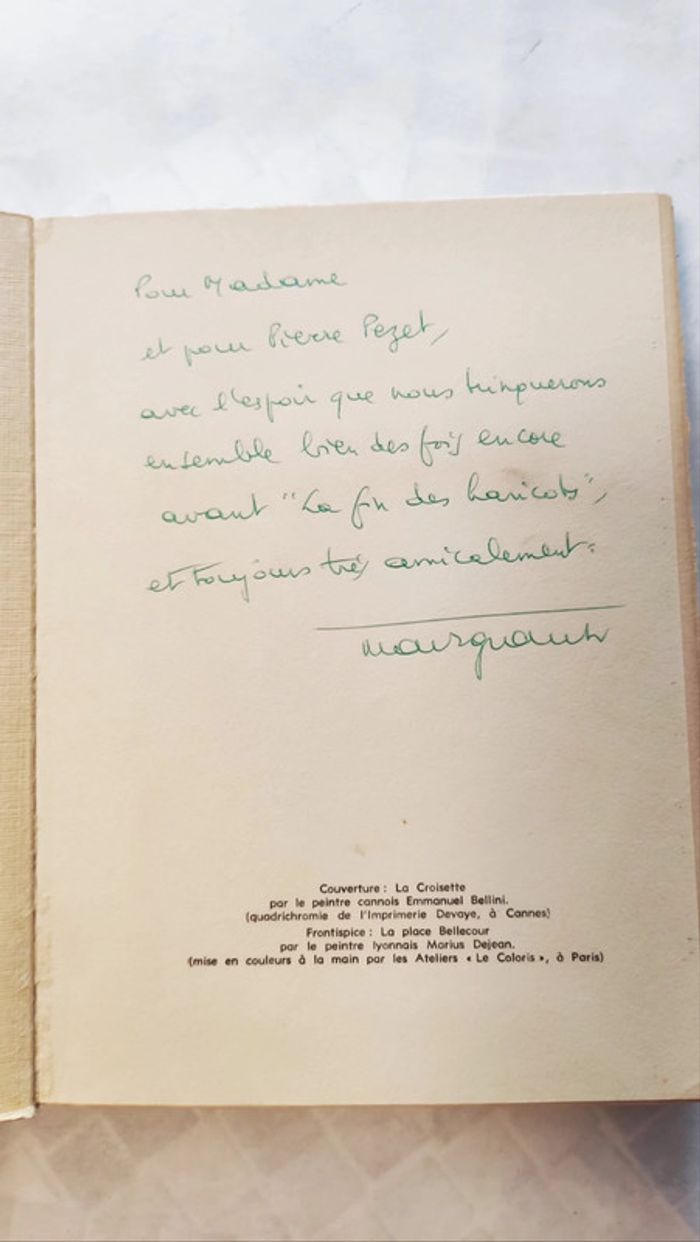 Pour Madame
et pour Pierre Pezet,
avec l'espoir que nous trinquerons
ensemble bien des fois encore
avant "La fin des haricots",
et toujours très amicalement.
Couverture : La Croisette
par le peintre cannois Emmanuel Bellini.
(quadrichromie de l'Imprimerie Devaye, à Cannes)
Frontispice : La place Bellecour
par le peintre lyonnais Marius Dejean.
(mise en couleurs à la main par les Ateliers « Le Coloris », à Paris)